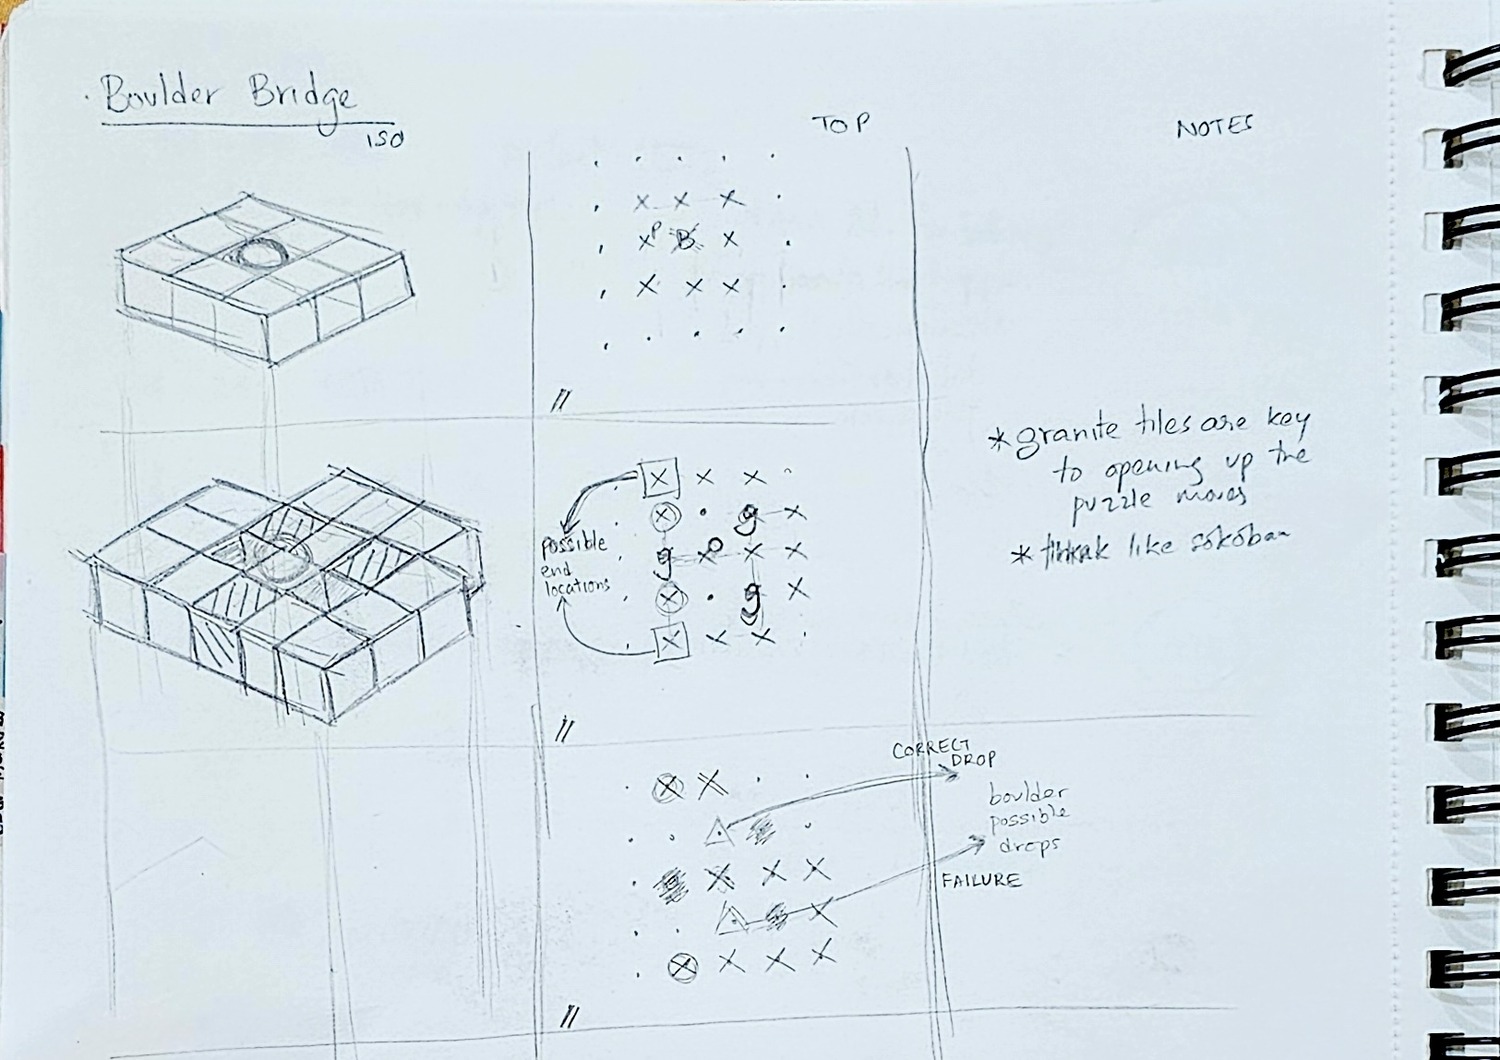 Boulder Bridge
ISO
TOP
NOTES
. . . . .
. x x x .
. x P B x .
. x x x .
. . . . .
//
possible
end
locations
. x x x .
. x . g x
. g x o x x
. x . g x
. x x x .
//
* granite tiles are key
to opening up the
puzzle moves
* think like sokoban
CORRECT
DROP
boulder
possible
drops
FAILURE
. x x . .
. . . .
. x x x
. . . x
. x x x x
//